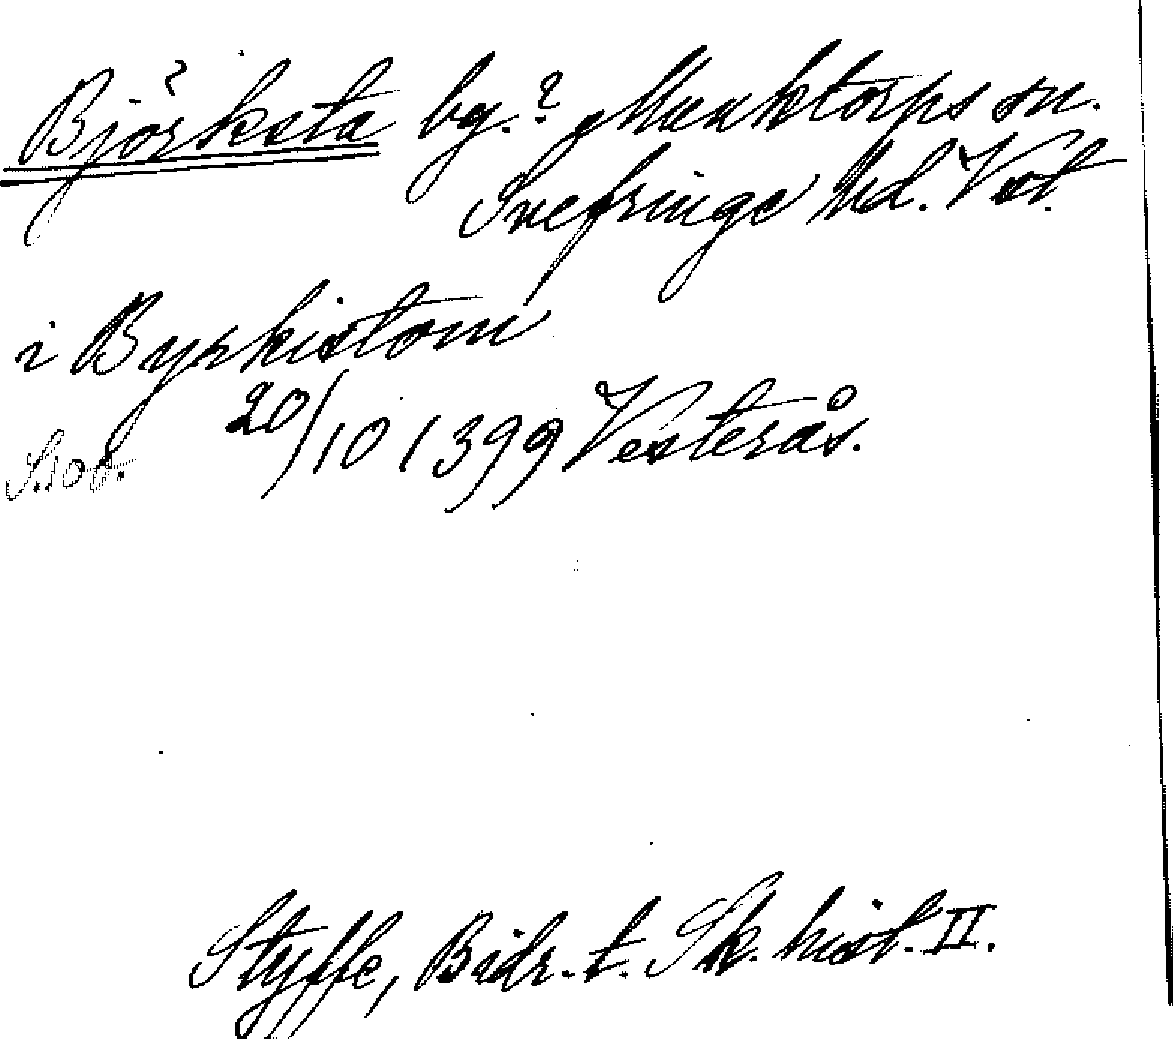 Björksta bg.? Munktorps sn.
Snefringe hd. Vst.
i Byrkistom
20/10 1399 Vesterås.
Styffe, Bidr. t. Sk. hist. II.